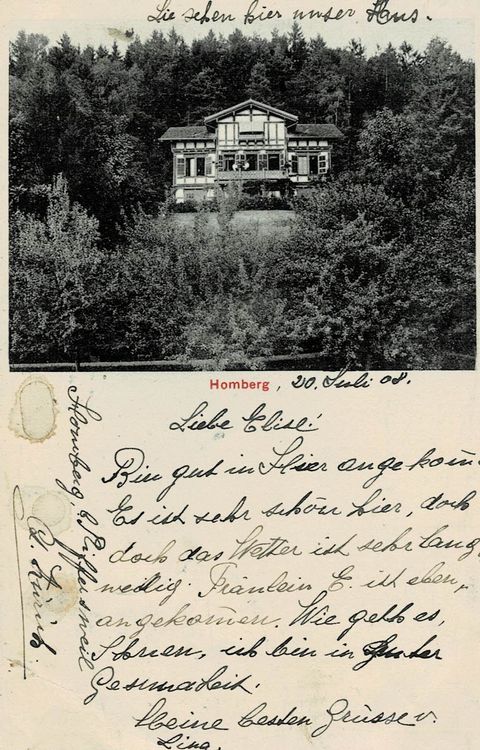 Sie sehen hier unser Haus.
Homberg, 20. Juli 08.
Liebe Elise!
Bin gut in Hier angekom̅
Es ist sehr schön hier, doch
doch das Wetter ist sehr lang,
weilig. Fräulein E. ist eben,
angekom̅en. Wie geht es,
Ihnen, ich bin in guter
Gesundheit.
Meine besten Grüsse v.
Lina.
Homberg, b/Riffersweil
Kt. Zürich.